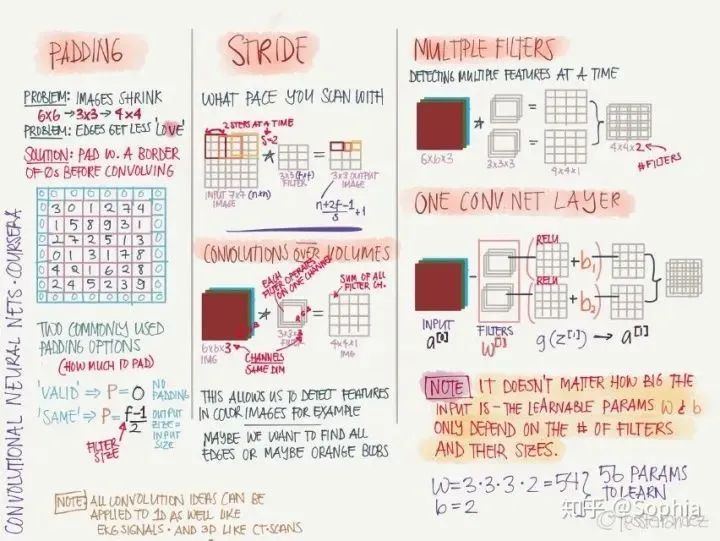 CONVOLUTIONAL NEURAL NETS · COURSERA
PADDING
PROBLEM: IMAGES SHRINK
6x6 → 3x3 → 4x4
PROBLEM: EDGES GET LESS 'LOVE'
SOLUTION: PAD W. A BORDER
OF 0s BEFORE CONVOLVING
0 0 0 0 0 0 0 0
0 3 0 1 2 7 4 0
0 1 5 8 9 3 1 0
0 2 7 2 5 1 3 0
0 0 1 3 1 7 8 0
0 4 2 1 6 2 8 0
0 2 4 5 2 3 9 0
0 0 0 0 0 0 0 0
TWO COMMONLY USED
PADDING OPTIONS
(HOW MUCH TO PAD)
'VALID' ⇒ P = 0 NO PADDING
'SAME' ⇒ P = f-1/2 OUTPUT SIZE = INPUT SIZE
FILTER SIZE
NOTE: ALL CONVOLUTION IDEAS CAN BE
APPLIED TO 1D AS WELL LIKE
EKG SIGNALS · AND 3D LIKE CT-SCANS
STRIDE
WHAT PACE YOU SCAN WITH
2 STEPS AT A TIME
S=2
* =
INPUT 7x7 (nxn)
IMAGE
3x3 (fxf)
FILTER
3x3 OUTPUT
IMAGE
n+2f-1/s +1
CONVOLUTIONS OVER VOLUMES
EACH
FILTER OPERATES
ON ONE CHANNEL
SUM OF ALL
FILTER CH.
* =
6x6x3
IMG
3x3x3
FILTER
4x4x1
IMG
CHANNELS
SAME DIM
THIS ALLOWS US TO DETECT FEATURES
IN COLOR IMAGES FOR EXAMPLE
MAYBE WE WANT TO FIND ALL
EDGES OR MAYBE ORANGE BLOBS
MULTIPLE FILTERS
DETECTING MULTIPLE FEATURES AT A TIME
* = =
6x6x3
3x3x3
4x4x1
4x4x2
#FILTERS
ONE CONV. NET LAYER
RELU
( + b1)
RELU
( + b2)
INPUT
a[0]
FILTERS
W[1]
g(z[1]) → a[1]
NOTE IT DOESN'T MATTER HOW BIG THE
INPUT IS - THE LEARNABLE PARAMS W & b
ONLY DEPEND ON THE # OF FILTERS
AND THEIR SIZES.
W = 3·3·3·2 = 54 } 56 PARAMS
b = 2 TO LEARN
知乎 @Sophia
@TessFerrandez